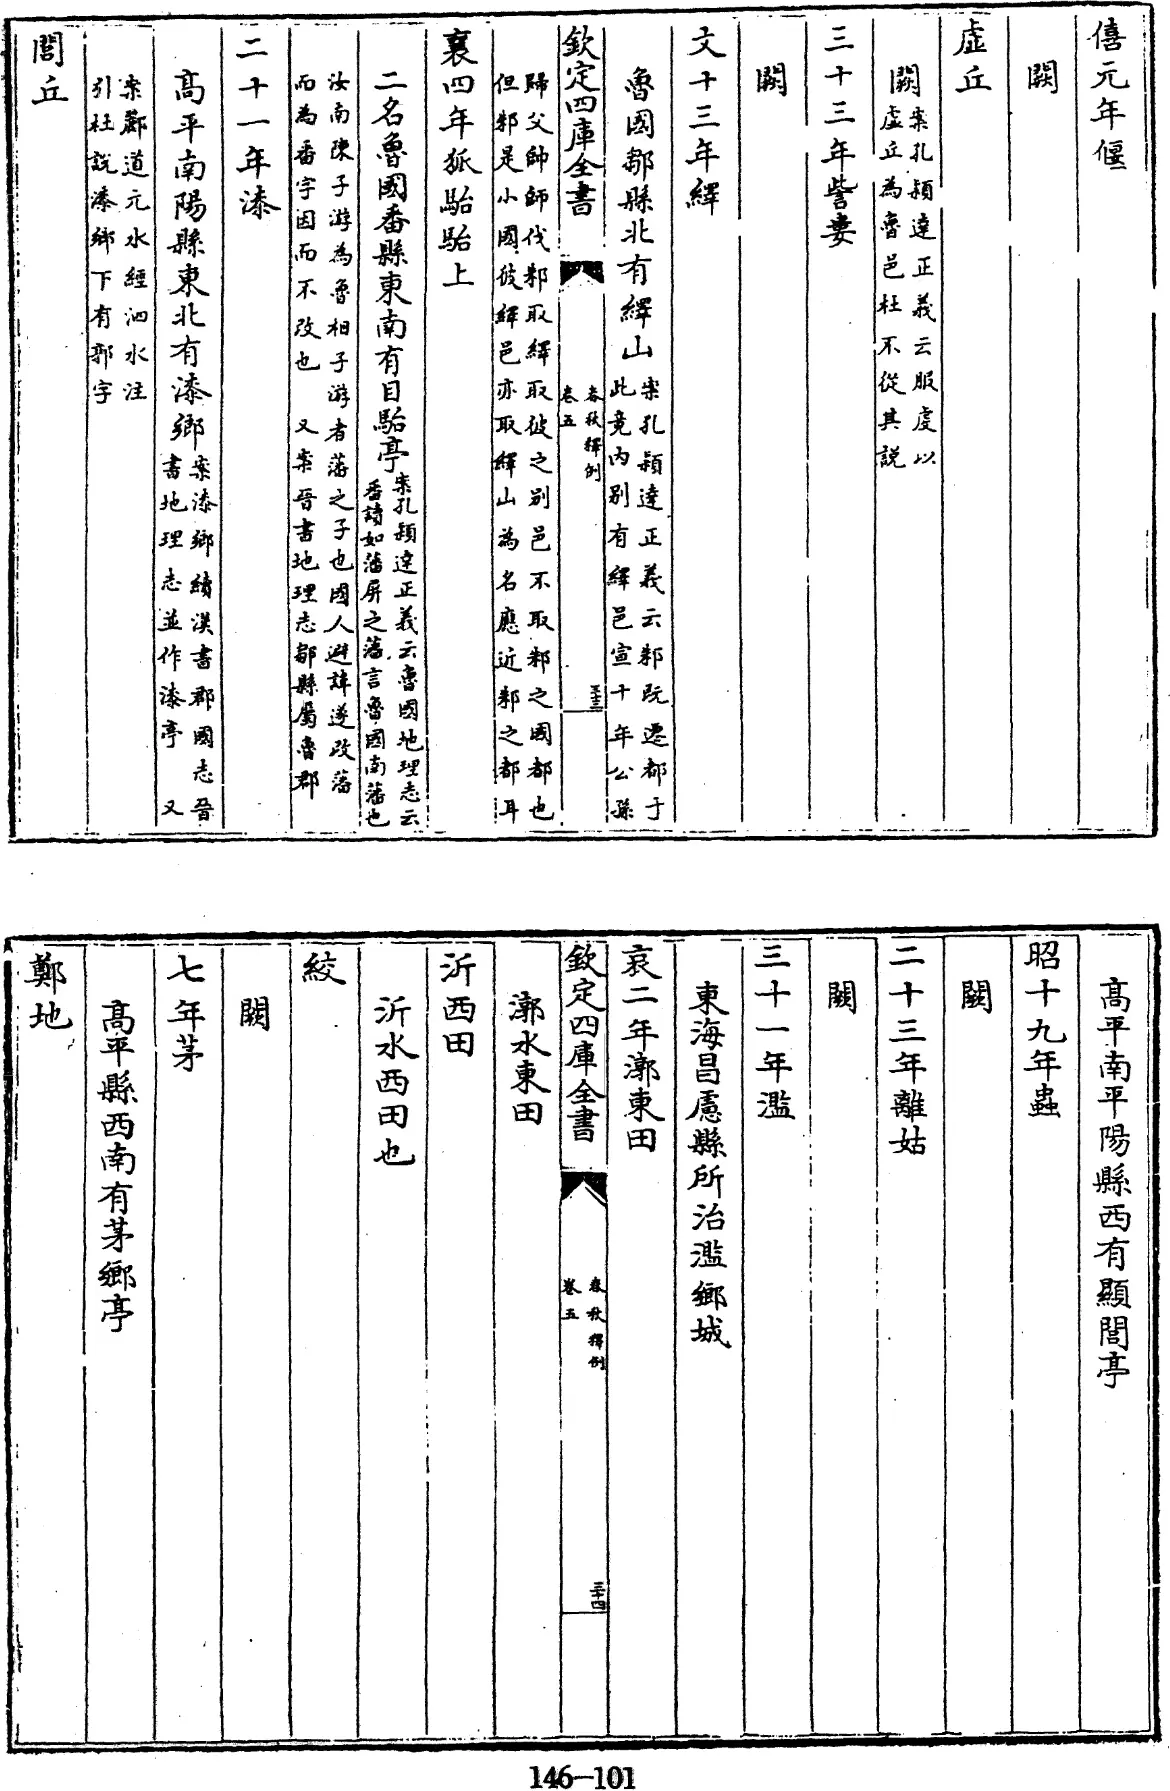 僖元年偃
闕
虛丘
闕案孔穎達正義云服虔以
虛丘為魯邑杜不從其説
三十三年訾婁
闕
文十三年繹
魯國鄒縣北有繹山案孔穎達正義云邾既遷都于
此竟内别有繹邑宣十年公孫
欽定四庫全書
春秋釋例
卷五
三十三
歸父帥師伐邾取繹取彼之别邑不取邾之國都也
但邾是小國彼繹邑亦取繹山為名應近邾之都耳
襄四年狐駘駘上
二名魯國番縣東南有目駘亭案孔穎達正義云魯國地理志云
番讀如藩屏之藩言魯國南藩也
汝南陳子游為魯相子游者藩之子也國人避諱遂改藩
而為番字因而不改也　又案晉書地理志鄒縣屬魯郡
二十一年漆
高平南陽縣東北有漆鄉案漆鄉續漢書郡國志晉
書地理志並作漆亭　又
案酈道元水經泗水注
引杜説漆鄉下有郭字
閭丘
高平南平陽縣西有顯閭亭
昭十九年蟲
闕
二十三年離姑
闕
三十一年濫
東海昌慮縣所治濫鄉城
哀二年漷東田
欽定四庫全書
春秋釋例
卷五
三十四
漷水東田
沂西田
沂水西田也
絞
闕
七年茅
高平縣西南有茅鄉亭
鄭地
146-101